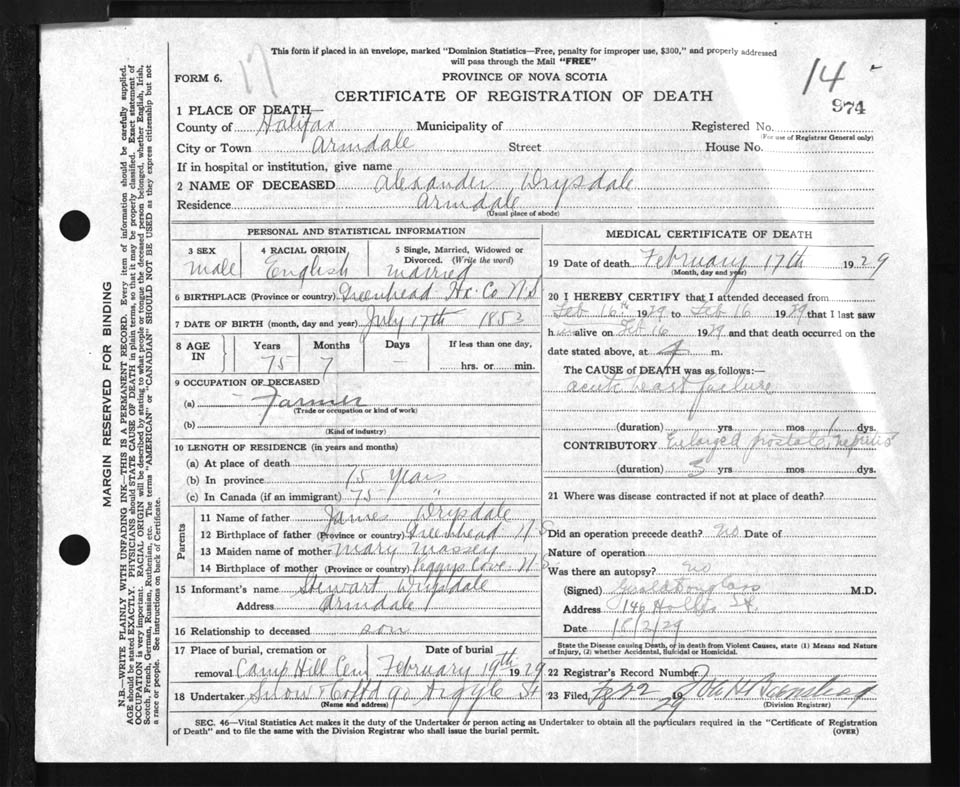 This form if placed in an envelope, marked "Dominion Statistics—Free, penalty for improper use, $300," and properly addressed
will pass through the Mail "FREE"
17
14 -
FORM 6.
PROVINCE OF NOVA SCOTIA
CERTIFICATE OF REGISTRATION OF DEATH
974
1 PLACE OF DEATH—
County of Halifax Municipality of Registered No.
(For use of Registrar General only)
City or Town Armdale Street House No.
If in hospital or institution, give name
2 NAME OF DECEASED Alexander Drysdale
Residence Armdale
(Usual place of abode)
PERSONAL AND STATISTICAL INFORMATION
3 SEX 4 RACIAL ORIGIN 5 Single, Married, Widowed or
Divorced. (Write the word)
Male English married
6 BIRTHPLACE (Province or country) Greenhead Hx. Co N.S
7 DATE OF BIRTH (month, day and year) July 17th 1853
8 AGE IN Years Months Days If less than one day,
75 7 – hrs. or min.
9 OCCUPATION OF DECEASED
(a) Farmer
(Trade or occupation or kind of work)
(b)
(Kind of industry)
10 LENGTH OF RESIDENCE (in years and months)
(a) At place of death
(b) In province 75 years
(c) In Canada (if an immigrant) 75 "
Parents
11 Name of father James Drysdale
12 Birthplace of father (Province or country) Greenhead N.S
13 Maiden name of mother Mary Massey
14 Birthplace of mother (Province or country) Peggys Cove N.S.
15 Informant's name Stewart Drysdale
Address Armdale
16 Relationship to deceased son
17 Place of burial, cremation or Date of burial
removal Camp Hill Cem February 19th 1929
18 Undertaker Snow & Co Ltd 90 Argyle St
(Name and address)
MEDICAL CERTIFICATE OF DEATH
19 Date of death February 17th 1929
(Month, day and year)
20 I HEREBY CERTIFY that I attended deceased from
Feb 16th 1929 to Feb 16 1929 that I last saw
h im alive on Feb 16 1929 and that death occurred on the
date stated above, at m.
The CAUSE of DEATH was as follows:—
acute heart failure
(duration) yrs mos 1 dys.
CONTRIBUTORY Enlarged prostate,
(duration) yrs mos dys.
21 Where was disease contracted if not at place of death?
Did an operation precede death? no Date of
Nature of operation
Was there an autopsy? no
(Signed) M.D.
Address 146 Hollis St.
Date 18/2/29
State the Disease causing Death, or in death from Violent Causes, state (1) Means and Nature
of Injury, (2) whether Accidental, Suicidal or Homicidal.
22 Registrar's Record Number
23 Filed, 22 1929
(Division Registrar)
SEC. 46—Vital Statistics Act makes it the duty of the Undertaker or person acting as Undertaker to obtain all the particulars required in the "Certificate of Registration
of Death" and to file the same with the Division Registrar who shall issue the burial permit. (OVER)
MARGIN RESERVED FOR BINDING
N.B.—WRITE PLAINLY WITH UNFADING INK—THIS IS A PERMANENT RECORD. Every item of information should be carefully supplied.
AGE should be stated EXACTLY. PHYSICIANS should STATE CAUSE OF DEATH in plain terms, so that it may be properly classified. Exact statement of
OCCUPATION is very important. RACIAL ORIGIN will be described by stating to what people or tongue the deceased person belonged, whether English, Irish,
Scotch, French, German, Russian, Ruthenian, etc. The terms "AMERICAN" or "CANADIAN" SHOULD NOT BE USED as they express citizenship but not
a race or people. See instructions on back of Certificate.